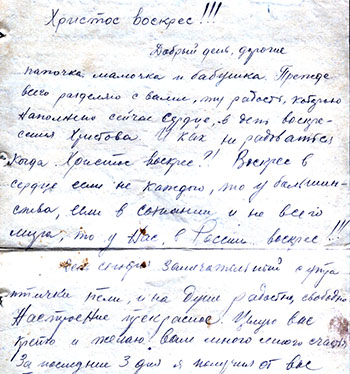 Христос воскрес!!!
Добрый день, дорогие
папочка, мамочка и бабушка. Прежде
всего разделяю с вами, ту радость, которою
наполнено сейчас сердце, в день воскре-
сения Христова. И как не радоваться
когда Христос воскрес?! Воскрес в
сердце если не каждого, то у большин-
ства, если в сознании и не всего
мира, то у нас, в России воскрес!!!
День замечательный с утра
птички пели, и на душе радостно, свободно
Настроение прекрасное. Целую вас
крепко и желаю вам много много счастья
За последние 3 дня я получил от вас